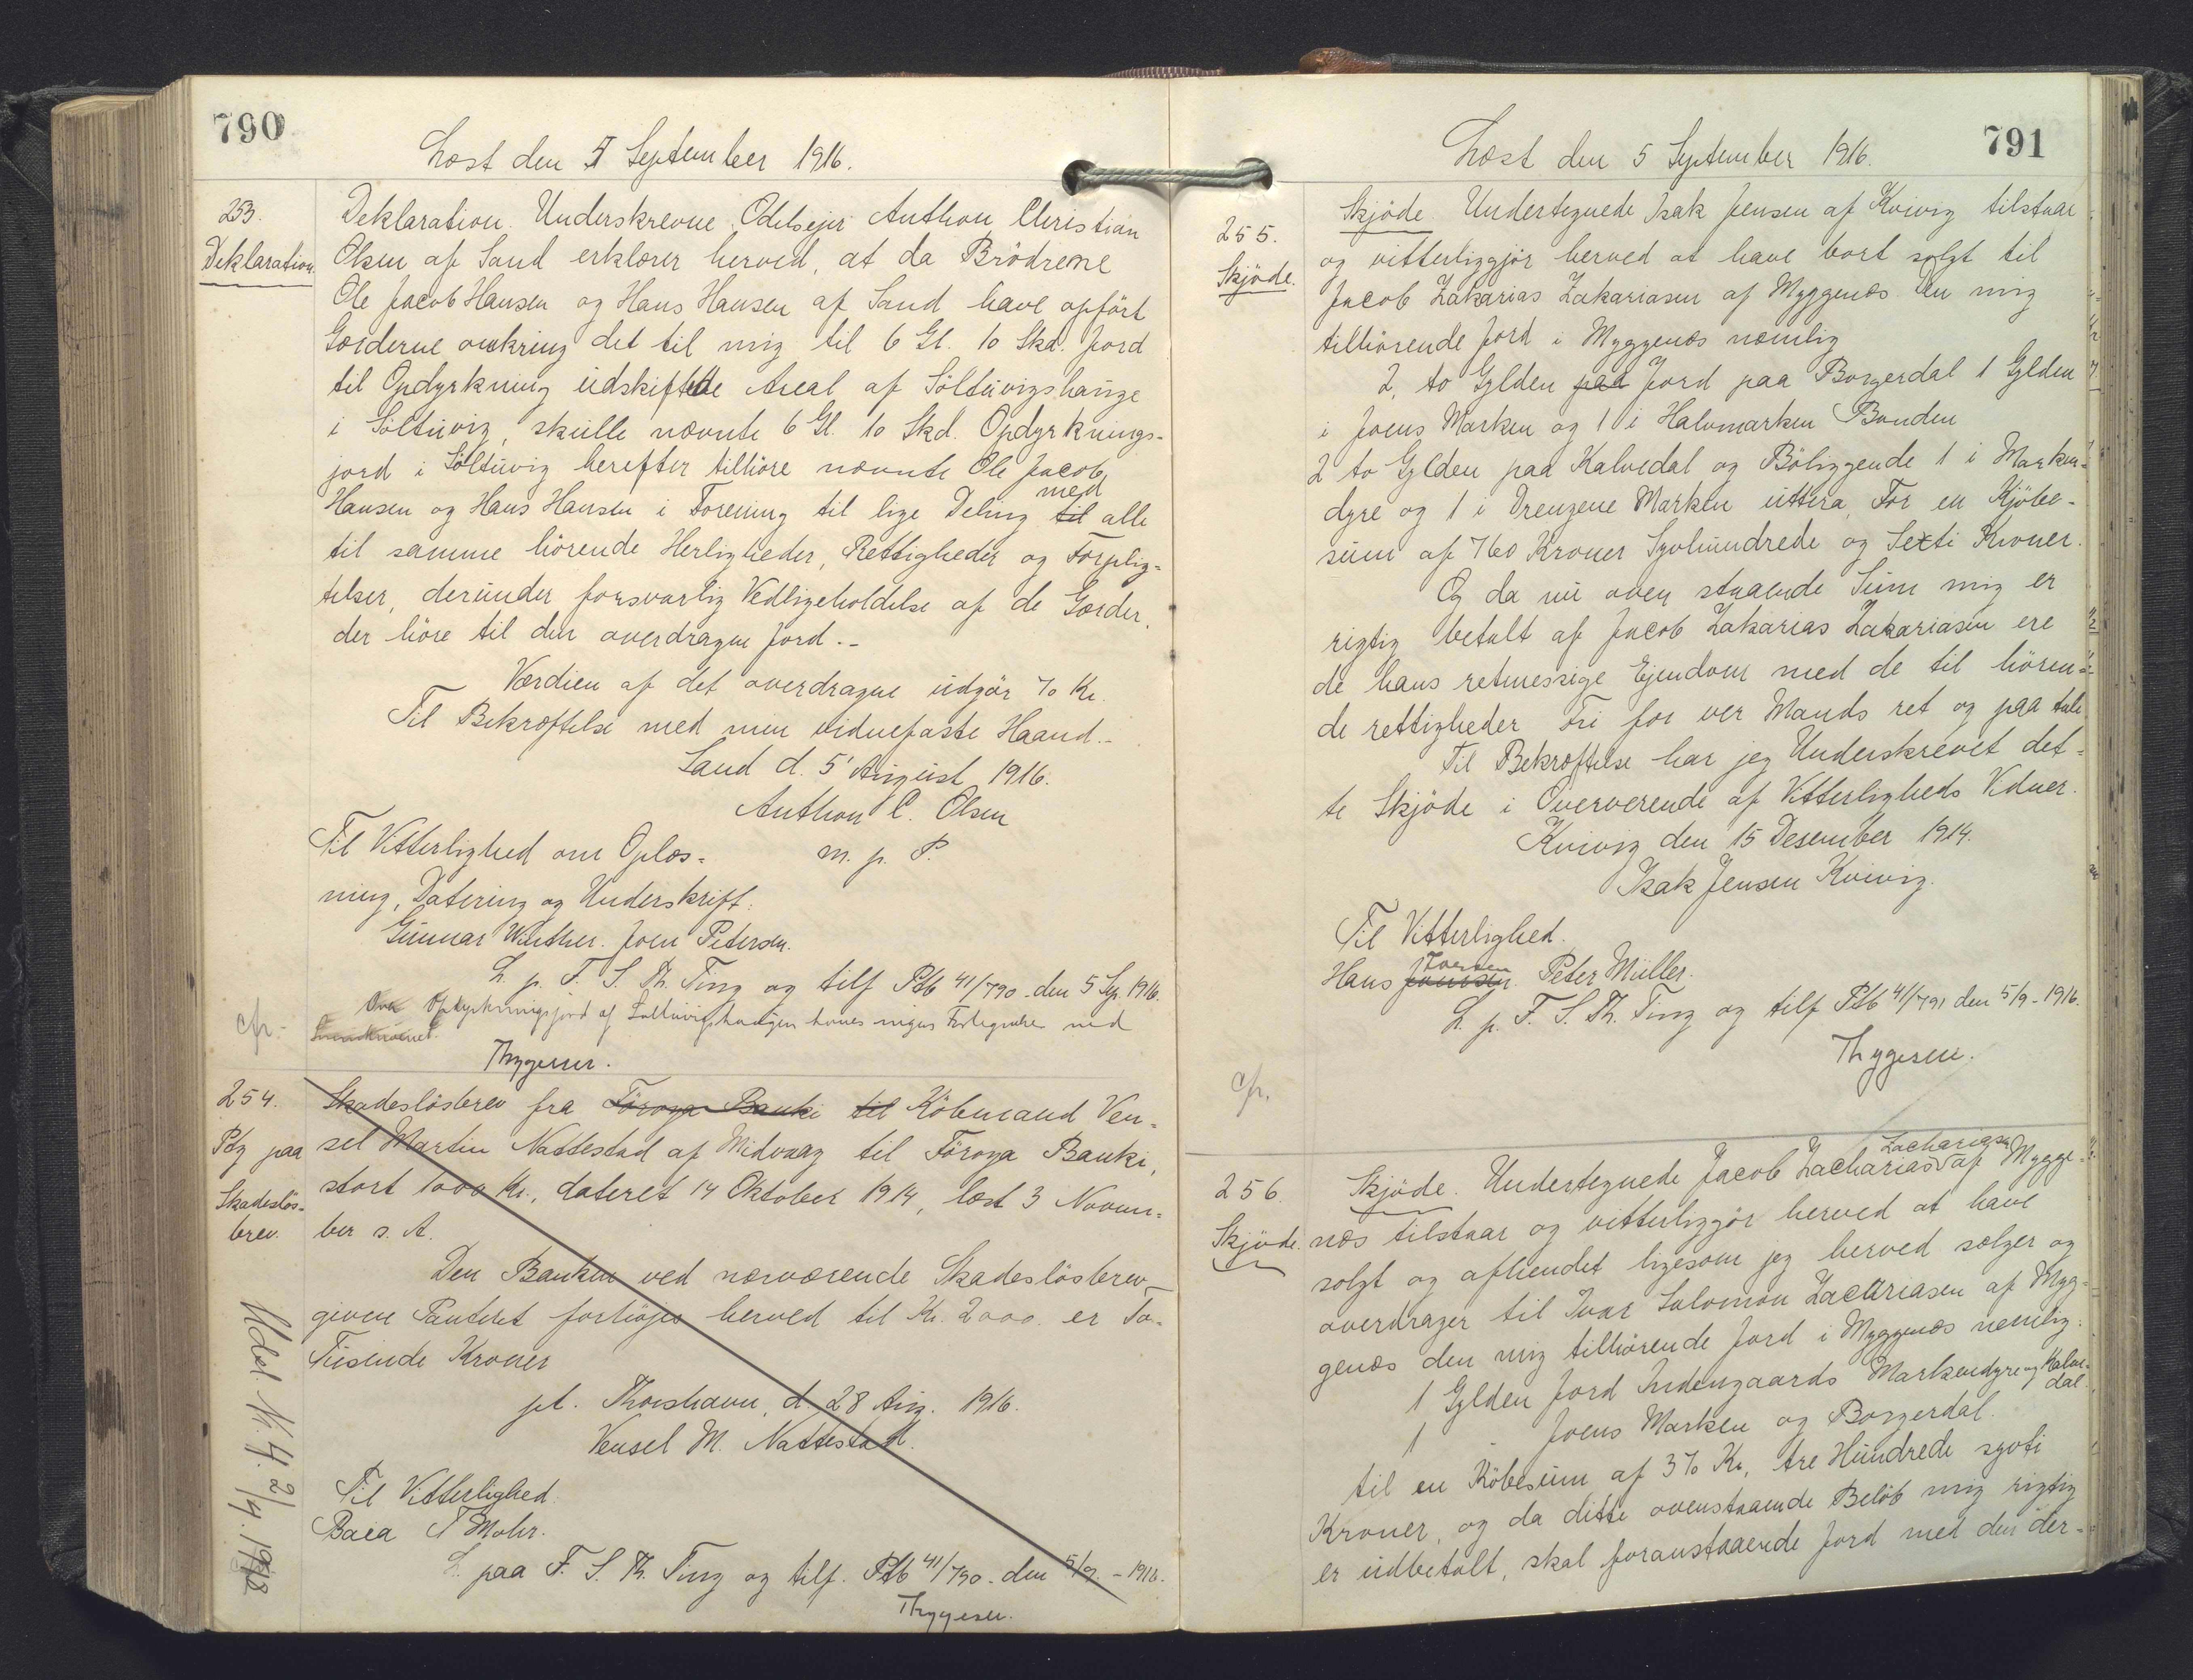 790
Læst den 5 September 1916.
253.
Deklaration.
Deklaration. Underskrevne Odelsejer Anthon Christian
Olsen af Sand erklærer herved, at da Brödrene
Ole Jacob Hansen og Hans Hansen af Sand have opfört
Gærderne omkring det til mig til 6 Gl. 10 Skd. Jord
til Opdyrkning udskiftede Areal af Söltuvigshauge
i Söltuvig, skulle nævnte 6 Gl. 10 Skd. Opdyrknings-
jord i Söltuvig herefter tilhöre nævnte Ole Jacob
Hansen og Hans Hansen i Forening til lige Deling til med alle
til samme hörende Herligheder, Rettigheder og Forplig-
telser, derunder forsvarlig Vedligeholdelse af de Gærder,
der höre til den overdragne Jord.-
Værdien af det overdragne udgör 70 Kr.
Til Bekræftelse med min vidnefaste Haand.-
Sand d. 5' August 1916.
Anthon C. Olsen
m. p. P.
Til Vitterlighed om Oplæs-
ning, Datering og Underskrift:
Gunnar Winther. Joen Petersen.
L. p. F. S. Th. Ting og tilf Ptb 41/790 den 5 Sep. 1916.
cfr.
Over Opdyrkningsjord af Saltuvigshaugen haves ingen Festegrunde ved
Thygesen.
254.
Ptg paa
Skadeslös-
brev.
Skadeslösbrev fra Föroya Banki til Köbmand Ven-
sel Martin Nattestad af Midvaag til Föroya Banki,
stort 1000 Kr., dateret 14 Oktober 1914, læst 3 Novem-
ber s. A.
Den Banken ved nærværende Skadeslösbrev
given Panteret forhöjes herved til Kr. 2000. er To-
Tusinde Kroner
pt. Thorshavn, d. 28 Aug. 1916.
Vensel M. Nattestad.
Til Vitterlighed:
Baia T Mohr.
L. paa F. S. Th. Ting og tilf. Ptb 41/790 - den 5/9. - 1916.
Thygesen.
Udsl. Nr. 4. 2/4. 1918
791
Læst den 5 September 1916.
255.
Skjöde.
Skjöde. Undertegnede Isak Jensen af Kvivig tilstaar
og vitterliggjör herved at have bort solgt til
Jacob Zakarias Zakariasen af Myggenæs den mig
tilhörende Jord i Myggenæs nemlig
2, to Gylden paa Jord paa Borgerdal 1 Gylden
i Joens Marken og 1 i Halvmarken Bonden
2 to Gylden paa Kalvedal og Böliggende 1 i Marken-
dyre og 1 i Drengene Marken uttera, For en Kjöbe-
sum af 760 Kroner Syvhundrede og Sexti Kroner.
Og da nu oven staaende Sum mig er
rigtig betalt af Jacob Zakarias Zakariasen ere
de hans retmessige Ejendom med de til hören-
de rettigheder Fri for ver Mands ret og paa tale
Til Bekræftelse har jeg Underskrevet det-
te Skjöde i Oververende af Vitterligheds Vidner.
Kvivig den 15 Desember 1914.
Isak Jensen Kvivig.
Til Vitterlighed.
Hans Joensen Peter Müller.
L. p. F. S. Th. Ting og tilf Ptb 41/791 den 5/9 - 1916.
Thygesen.
cfr.
256.
Skjöde.
Skjöde. Undertegnede Jacob Zacharias Zachariasen af Mygge-
næs tilstaar og vitterliggör herved at have
solgt og afhendet ligesom jeg herved sælger og
overdrager til Ivar Salomon Zacariasen af Myg-
genæs den mig tilhörende Jord i Myggenæs nemlig:
1 Gylden Jord Indengaards Markendyre og Kalve-
dal.
1 - Joens Marken og Borgerdal.
til en Köbesum af 370 Kr, tre Hundrede syvti
Kroner, og da ditte ovenstaaende Belöb mig rigtig
er udbetalt, skal foranstaaende Jord med den der-